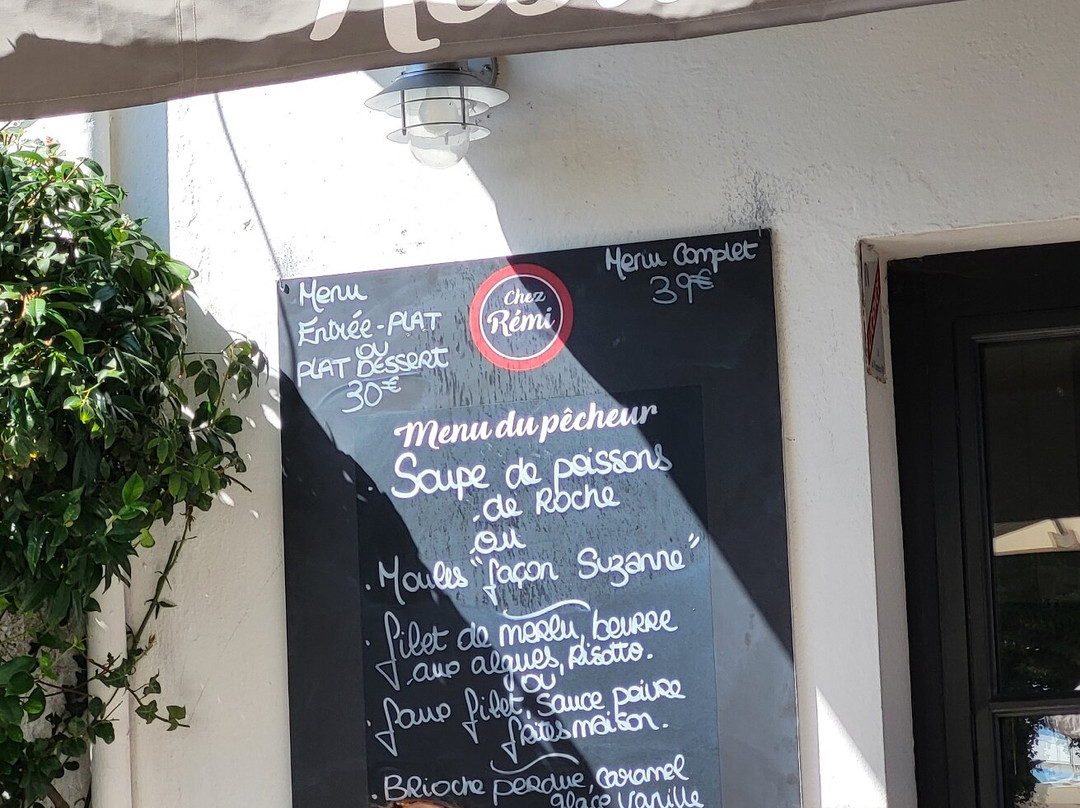 Menu
Entrée - PLAT
ou
PLAT DESSERT
30€
Chez
Rémi
Menu Complet
39€
Menu du pêcheur
Soupe de poissons
de Roche
ou
. Moules "façon Suzanne"
. filet de merlu, beurre
aux algues, Risotto.
ou
. faux filet, Sauce poivre
frites maison.
. BRioche perdue, caramel
glace vanille